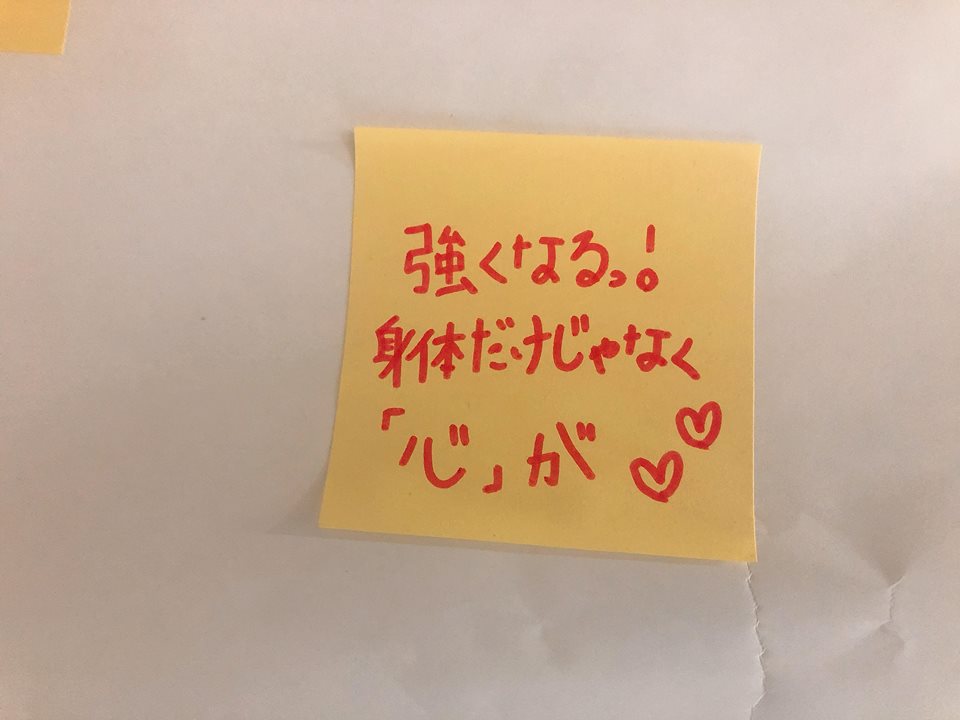 強くなるっ!
身体だけじゃなく
「心」が♡♡